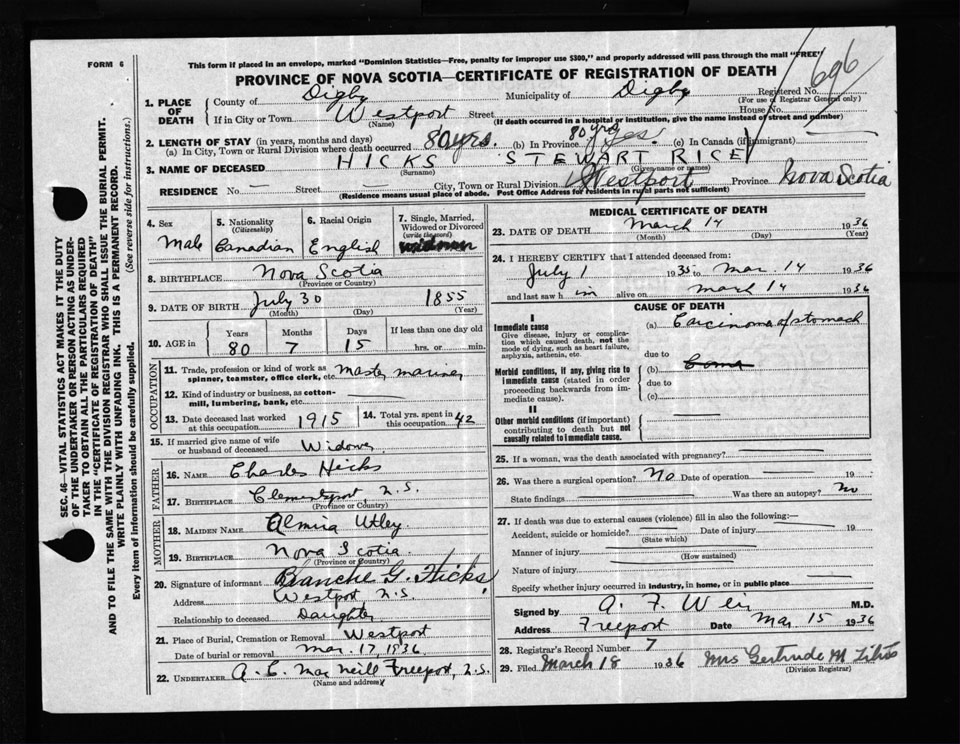 FORM 6
This form if placed in an envelope, marked "Dominion Statistics—Free, penalty for improper use $300," and properly addressed will pass through the mail "FREE"
PROVINCE OF NOVA SCOTIA—CERTIFICATE OF REGISTRATION OF DEATH
1696
1. PLACE OF DEATH
County of Digby Municipality of Digby Registered No.
(For use of Registrar General only)
If in City or Town Westport Street House No.
(Name) (If death occurred in a hospital or institution, give the name instead of street and number)
2. LENGTH OF STAY (in years, months and days)
(a) In City, Town or Rural Division where death occurred 80 yrs. (b) In Province 80 yrs yes. (c) In Canada (if immigrant)
3. NAME OF DECEASED HICKS STEWART RICE
(Surname) (Given name or names)
RESIDENCE No. — Street — City, Town or Rural Division Westport Province Nova Scotia
(Residence means usual place of abode. Post Office Address for residents in rural parts not sufficient)
4. Sex Male
5. Nationality (Citizenship) Canadian
6. Racial Origin English
7. Single, Married, Widowed or Divorced (write the word) widower
8. BIRTHPLACE Nova Scotia
(Province or Country)
9. DATE OF BIRTH July 30 1855
(Month) (Day) (Year)
10. AGE in Years 80 Months 7 Days 15 If less than one day old
hrs. or min.
OCCUPATION
11. Trade, profession or kind of work as spinner, teamster, office clerk, etc. Master mariner
12. Kind of industry or business, as cotton-mill, lumbering, bank, etc.
13. Date deceased last worked at this occupation 1915
14. Total yrs. spent in this occupation 42
15. If married give name of wife or husband of deceased Widower
FATHER
16. NAME Charles Hicks
17. BIRTHPLACE Clementsport, N.S.
(Province or Country)
MOTHER
18. MAIDEN NAME Almira Utley
19. BIRTHPLACE Nova Scotia
(Province or Country)
20. Signature of informant Blanche G. Hicks
Address Westport, N.S.
Relationship to deceased Daughter
21. Place of Burial, Cremation or Removal Westport
Date of burial or removal Mar. 17, 1936.
22. UNDERTAKER A. E. MacNeill Freeport, N.S.
(Name and address)
MEDICAL CERTIFICATE OF DEATH
23. DATE OF DEATH March 14 1936
(Month) (Day) (Year)
24. I HEREBY CERTIFY that I attended deceased from:
July 1 1935 to Mar. 14 1936
and last saw h im alive on March 14 1936
CAUSE OF DEATH
I
Immediate cause
Give disease, injury or complication which caused death, not the mode of dying, such as heart failure, asphyxia, asthenia, etc.
(a) Carcinoma of stomach
due to
Morbid conditions, if any, giving rise to immediate cause (stated in order proceeding backwards from immediate cause).
(b) Coma
due to
(c)
II
Other morbid conditions (if important) contributing to death but not causally related to immediate cause.
25. If a woman, was the death associated with pregnancy?
26. Was there a surgical operation? No Date of operation 19
State findings Was there an autopsy? No
27. If death was due to external causes (violence) fill in also the following:—
Accident, suicide or homicide? Date of injury 19
(State which)
Manner of injury
(How sustained)
Nature of injury
Specify whether injury occurred in industry, in home, or in public place
Signed by A. F. Weir M.D.
Address Freeport Date Mar 15 1936
28. Registrar's Record Number 7
29. Filed March 18 1936 Mrs Gertrude M
(Division Registrar)
SEC. 46—VITAL STATISTICS ACT MAKES IT THE DUTY
OF THE UNDERTAKER OR PERSON ACTING AS UNDER-
TAKER TO OBTAIN ALL THE PARTICULARS REQUIRED
IN THE "CERTIFICATE OF REGISTRATION OF DEATH"
AND TO FILE THE SAME WITH THE DIVISION REGISTRAR WHO SHALL ISSUE THE BURIAL PERMIT.
WRITE PLAINLY WITH UNFADING INK. THIS IS A PERMANENT RECORD.
Every item of information should be carefully supplied. (See reverse side for instructions.)